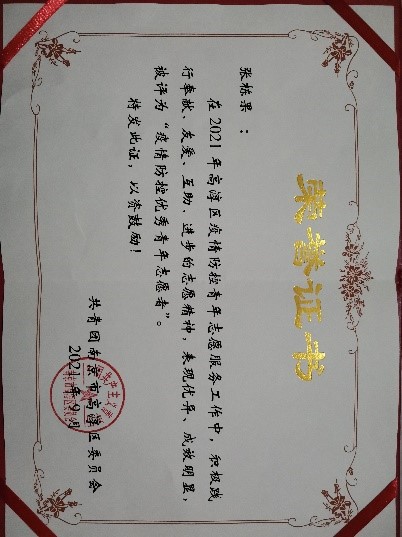 荣誉证书
张栋果：
在2021年高淳区疫情防控青年志愿服务工作中，积极践
行奉献、友爱、互助、进步的志愿精神，表现优异、成效明显，
被评为“疫情防控优秀青年志愿者”。
特发此证，以资鼓励！
共青团南京市高淳区委员会
2021年9月